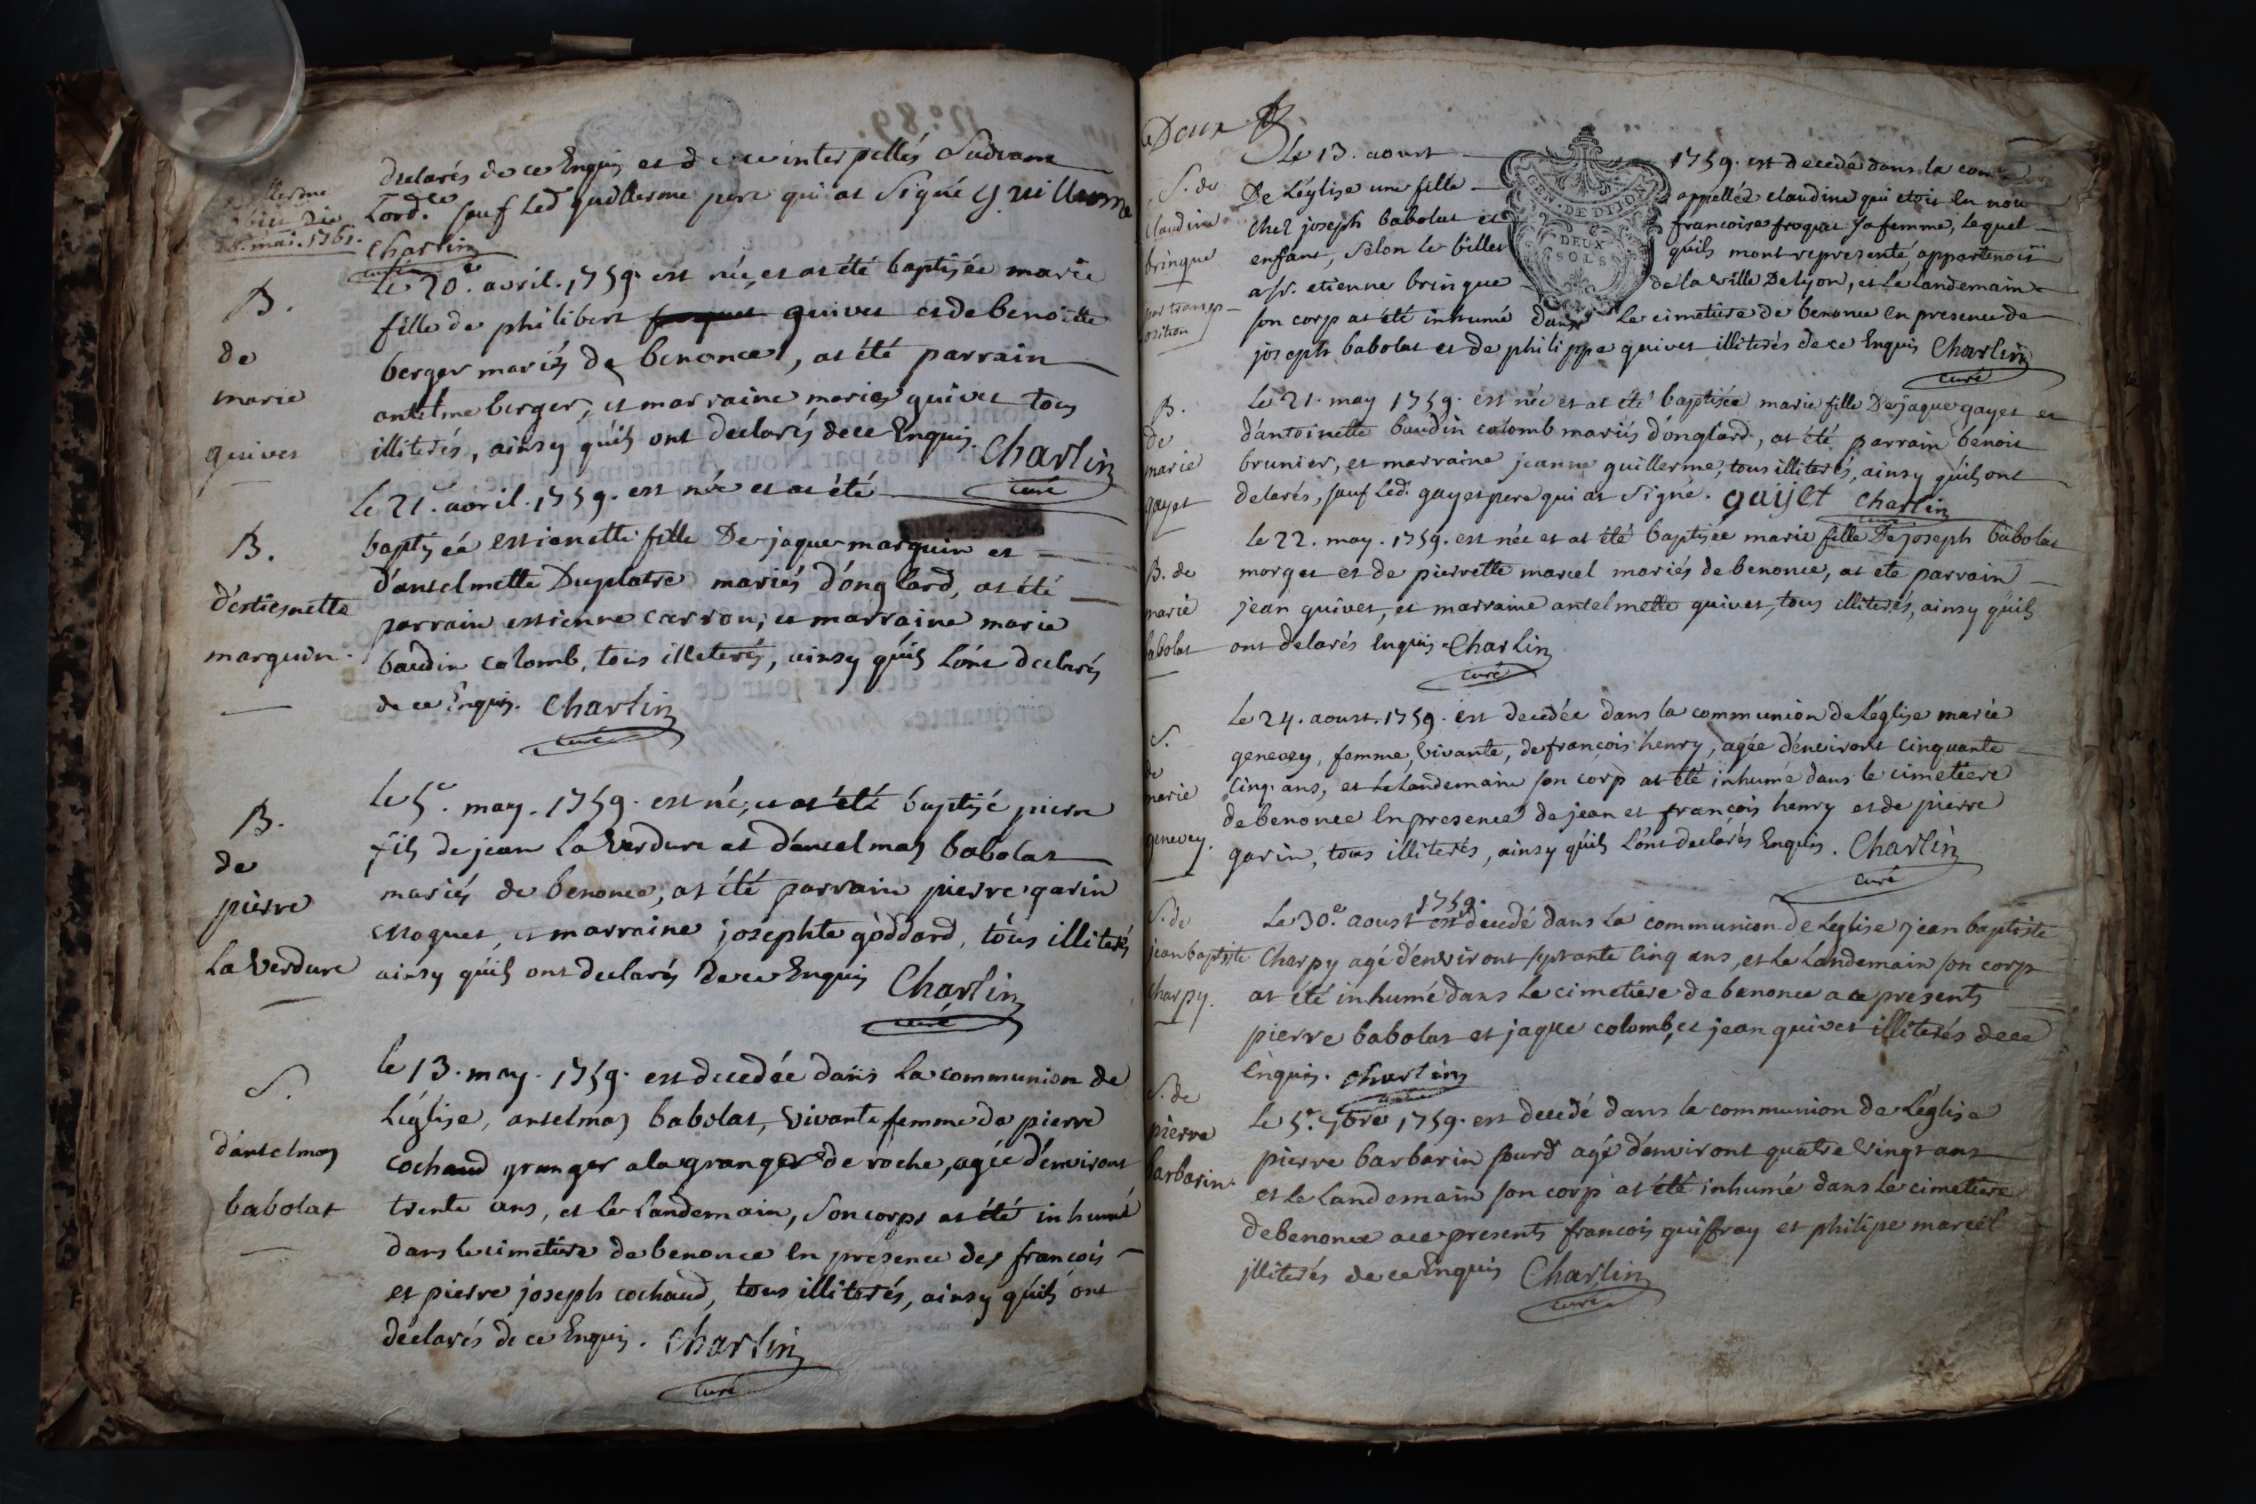 declarés de ce Enquis et de ce interpellés Suivant
Lord.ce sauf Led. guillerme pere qui at Signé Guillerme
Charlin
curé
mai. 1761.
B.
de
marie
quivet
Le 20.e avril. 1759. est née, et at été baptisée marie
fille de philibert quivet et de benoitte
berger mariés de benonce, at été parrain
antelme berger, et marraine marie quivet tous
illiterés, ainsy qu'ils ont declarés de ce Enquis. Charlin
curé
B.
d'estiennette
marquin.
Le 21.e avril. 1759. est née et at été
baptisée estienette fille De jaque marquin et
d'antelmette Duplatre mariés d'onglard, at été
parrain estienne carron, et marraine marie
baudin colomb, tous illiterés, ainsy qu'ils l'ont declarés
de ce Enquis. Charlin
curé
B.
de
pierre
La Verdure
Le 5.e may. 1759. est né, et at été baptisé pierre
fils de jean La Verdure et d'antelmaz babolat
mariés de benonce, at été parrain pierre garin
et marraine josephte goddard, tous illiterés
ainsy qu'ils ont declarés de ce Enquis Charlin
curé
S.
d'antelmaz
babolat
le 13. may. 1759. est decedée dans la communion de
L'église, antelmaz babolat, vivante femme de pierre
cochaud granger a la grange de roche, agée d'environt
trente ans, et le Landemain, Son corps at été inhumé
dans le cimetiere de benonce En presence des françois
et pierre joseph cochaud, tous illiterés, ainsy qu'ils ont
declarés de ce Enquis. Charlin
curé
Deux
S. de
claudine
brinque
par transp-
osition
Le 13. aoust 1759. est decedée dans la
De L'église une fille appellée claudine qui etoit En nou
chez joseph babolat et francoise froquet sa femme, Lequel
enfant, Selon le billet qu'ils m'ont representé, appartenoit
a Sr. etienne brinque de la ville De Lyon, et Le Landemain
son corp at été inhumé dans Le cimetiere de benonce En presence de
joseph babolat et de philippe quivet illiterés de ce Enquis Charlin
curé
GEN. DE DIJON
DEUX
SOLS
B.
de
marie
gayet
Le 21. may 1759. est née et at été baptisée marie fille De jaque gayet et
d'antoinette baudin colomb mariés d'onglard, at été parrain benoit
brunier, et marraine jeanne guillerme, tous illiterés, ainsy qu'ils ont
delarés, sauf Led. gayet pere qui at Signé. gayet Charlin
curé
B. de
marie
babolat
Le 22. may. 1759. est née et at été baptisée marie fille De joseph babolat
morget et de pierrette marcel mariés de benonce, at eté parrain
jean quivet, et marraine antelmette quivet, tous illiterés, ainsy qu'ils
ont delarés Enquis. Charlin
curé
S.
de
marie
genevey.
Le 24. aoust. 1759. Est decedée dans la communion de L'église marie
genevey, femme, vivante, de françois henry, agée d'environt cinquante
Cinq ans, et Le Landemain son corp at été inhumé dans le cimetiere
de benonce En presence de jean et françois henry et de pierre
garin, tous illiterés, ainsy qu'ils l'ont declarés Enquis. Charlin
curé
S. de
jean baptiste
charpy.
1759.
Le 30.e aoust est decedé dans La communion de Leglise jean baptiste
Charpy agé d'environt septante Cinq ans, et Le Landemain son corp
at été inhumé dans Le cimetiere de benonce a ce presents
pierre babolat et jaque colomb, et jean quivet illiterés de ce
Enquis. Charlin
curé
S. de
pierre
barbarin.
Le 5.e 7bre 1759. est decedé dans la communion de L'église
pierre barbarin sourd agé d'environt quatre vingt ans
et Le Landemain son corp at été inhumé dans Le cimetiere
de benonce a ce presents francois guiffray et philipe marcel
illiterés de ce Enquis Charlin
curé